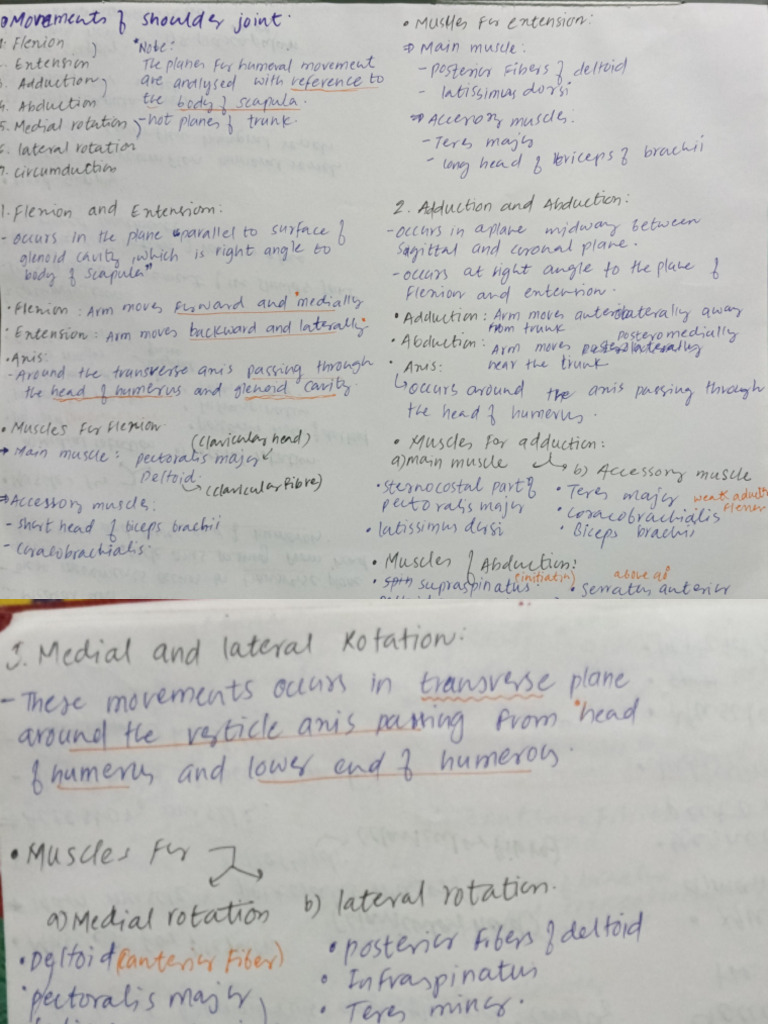 Movements of shoulder joint.
1. Flexion
2. Extension
3. Adduction
4. Abduction
5. Medial rotation
6. lateral rotation
7. circumduction
*Note:
The planes for humeral movement
are anallysed with reference to
the body of scapula.
- not planes of trunk.
1. Flexion and Extension:
- occurs in the plane "parallel to surface of
glenoid cavity, which is right angle to
body of scapula"
• Flexion: Arm moves forward and medially
• Extension: Arm moves backward and laterally
• Axis:
- Around the transverse axis passing through
the head of humerus and glenoid cavity.
• Muscles for flexion
→ Main muscle: pectoralis major (clavicular head)
Deltoid. (clavicular fibre)
⇒ Accessory muscles:
- short head of biceps brachii
- coracobrachialis.
• Muscles for extension:
⇒ Main muscle:
- posterior fibers of deltoid
- latissimus dorsi
⇒ Accesory muscles.
- Teres major
- long head of triceps of brachii
2. Adduction and Abduction:
- occurs in a plane midway between
sagittal and coronal plane.
- occurs at right angle to the plane of
flexion and extension.
• Adduction: Arm moves anterolaterally away
from trunk
• Abduction: Arm moves posteromedially
near the trunk
• Axis:
↳ occurs around the axis passing through
the head of humerus.
• Muscles for adduction:
a) main muscle
• sternocostal part of
pectoralis major
• latissimus dorsi
b) Accessory muscle
• Teres major
• coracobrachialis
• Biceps brachii
weak adduct
flexor
• Muscles of Abduction:
• supraspinatus (initiation)
• Serratus anterior
3. Medial and lateral Rotation:
- These movements occurs in transverse plane
around the verticle axis passing from head
of humerus and lower end of humerous.
• Muscles for
a) Medial rotation
• Deltoid (anterior fiber)
• pectoralis major
b) lateral rotation.
• posterior fibers of deltoid
• Infraspinatus
• Teres minor.